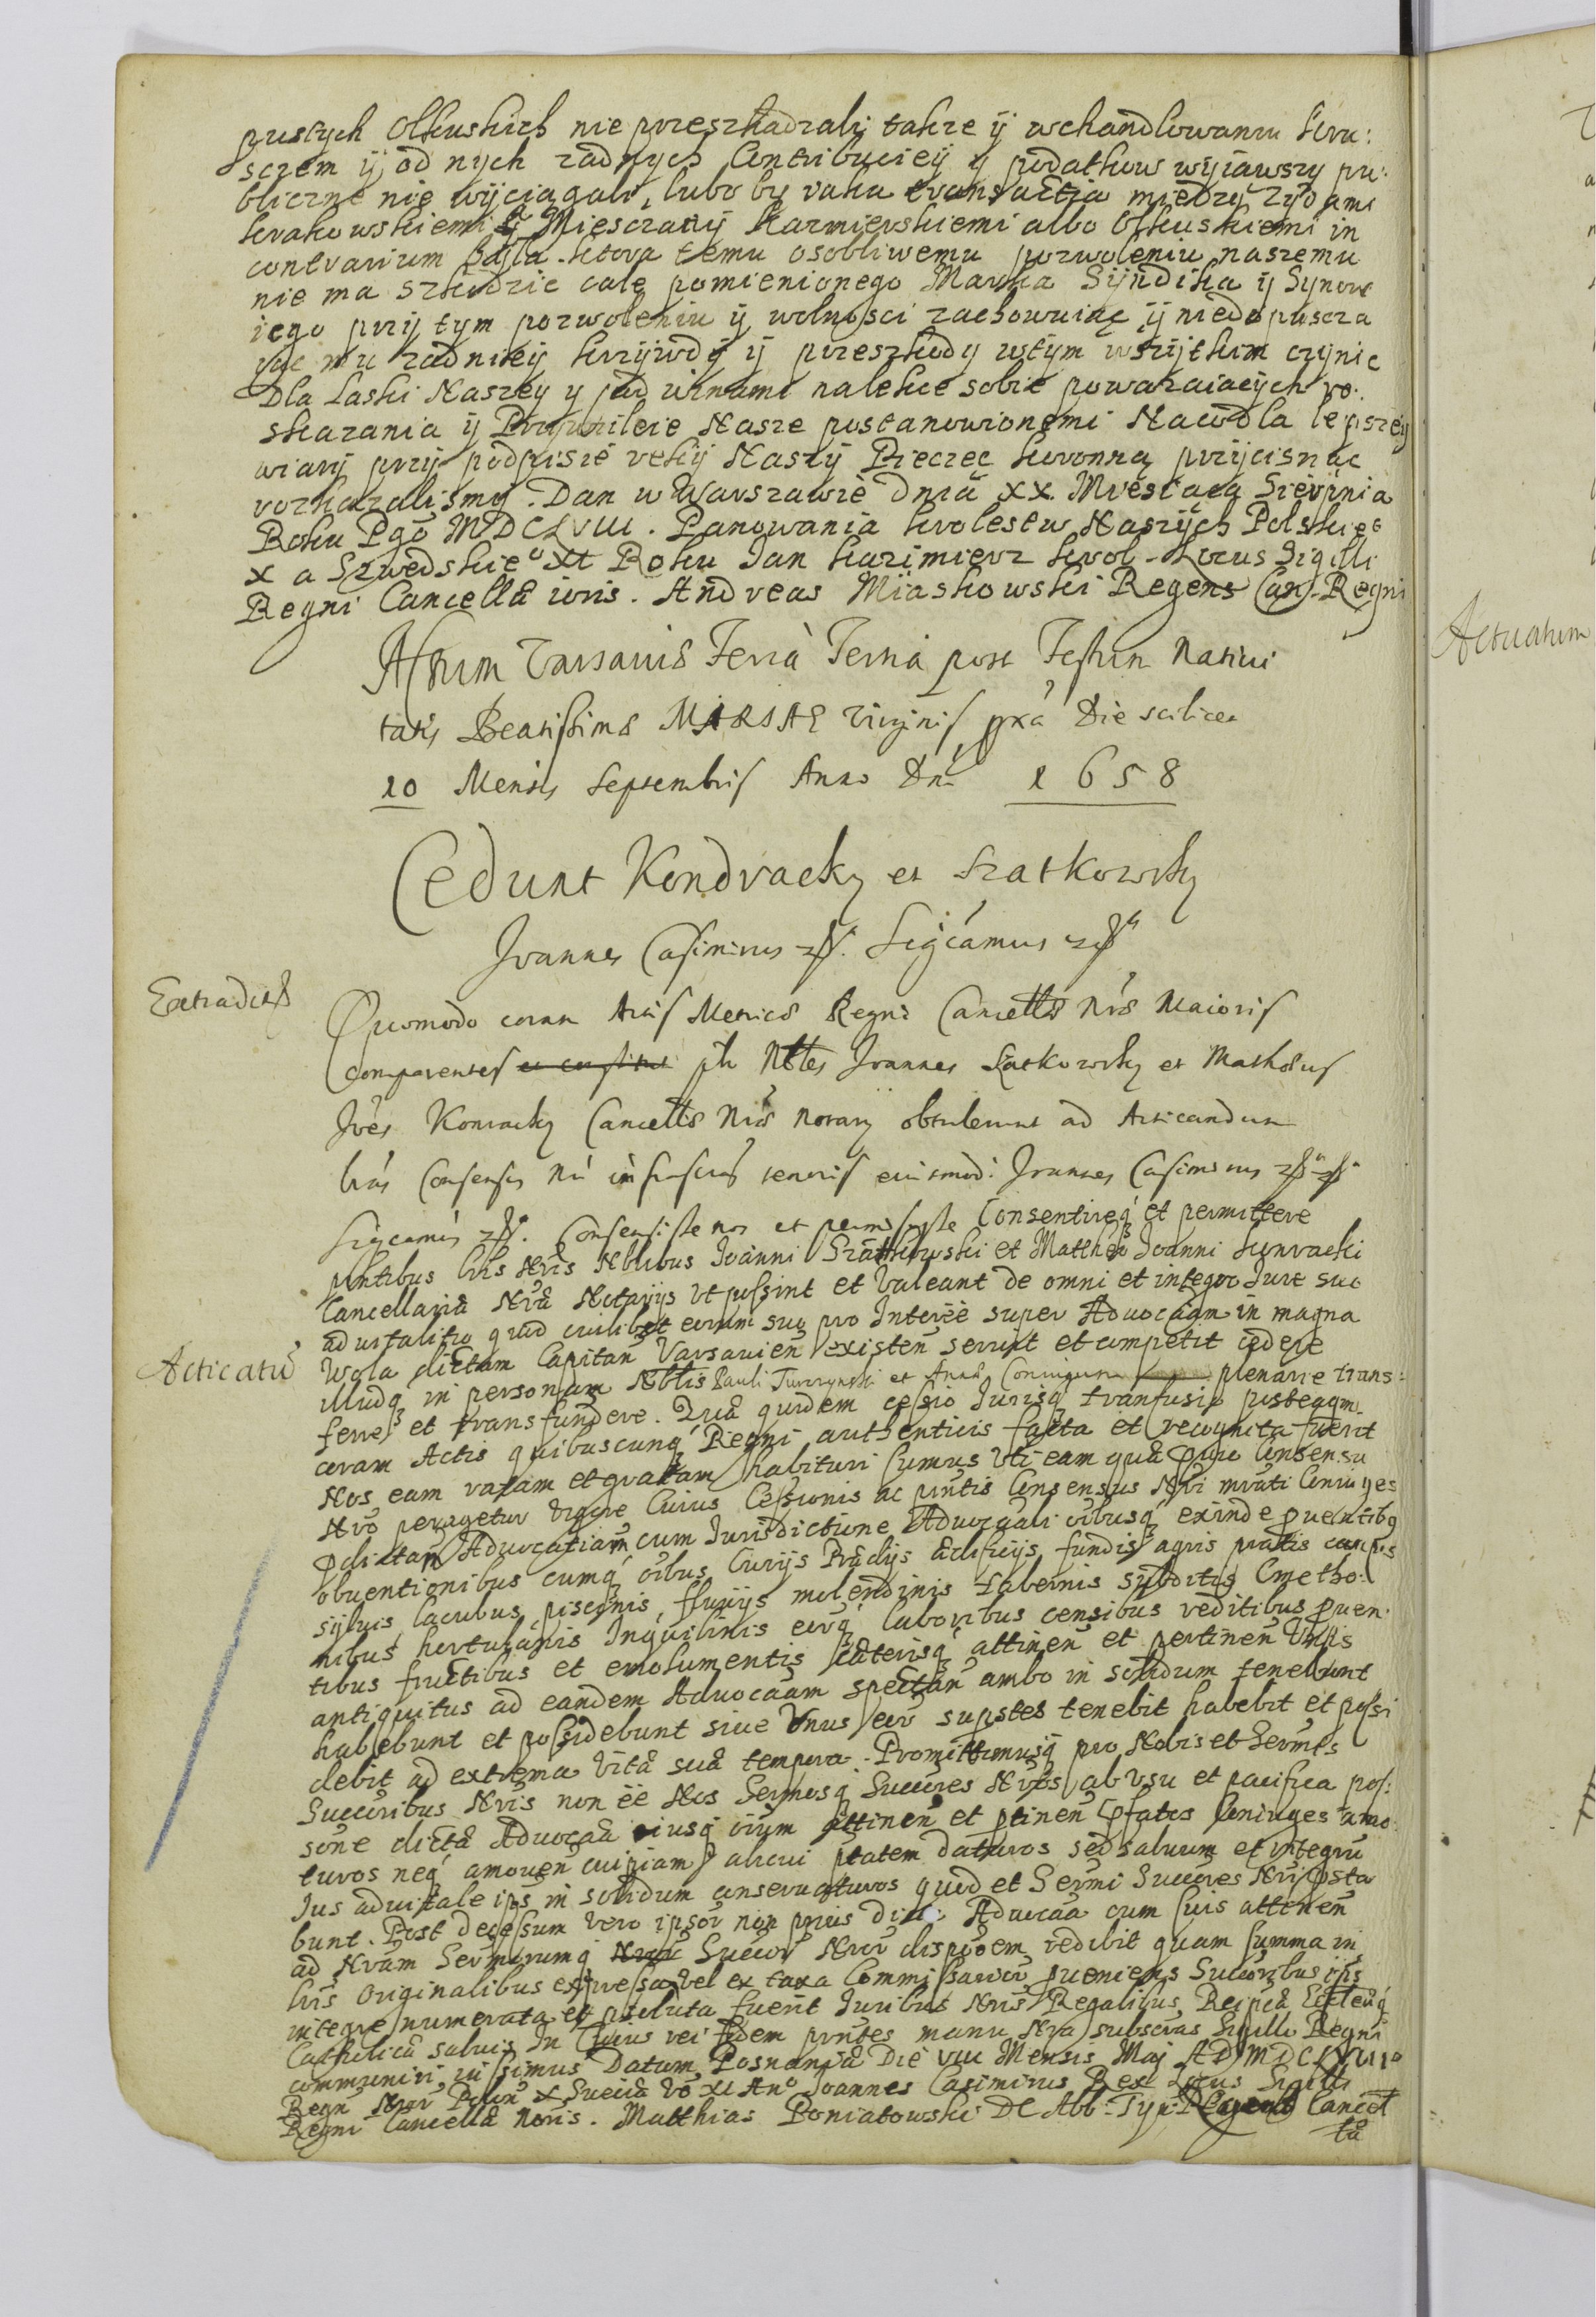 pustych Olkuskich nie przeszkadzali takze ÿ w handlowaniu kru:
szcem ÿ od nych zadnych Contribucieÿ y podatkow wÿiawszy pu:
bliczne nie wÿciagali, lubo by iaka transactia miedzÿ Zÿdami
krakowskiemi ÿ Miesczany Kazmierskiemi albo Olkuskiemi in
contrarium była. ktora temu osobliwemu pozwoleniu naszemu
nie ma szkodzic cale pomienionego Marka Sÿndika ÿ Synow
iego przÿ tym pozwoleniu ÿ wolnosci zachowuiąc ÿ niedopuscza
iąc mu zadnieÿ krzÿwdÿ ÿ przeszkody wtÿm wszÿtkim czÿnic
Dla Laski Naszeÿ y pod winami nalekce sobie powazaiacÿch ro:
skazania ÿ Przywileie Nasze postanowionemi Naco dla lepszeÿ
wiarÿ przÿ podpisie rekÿ Naszÿ Pieczęc koronną przÿcisnąc
rozkazalismÿ. Dan w Warszawie Dnia XX. Miesiąca Sierpnia
Roku Pgo MDCLVIII. Panowania krolestw Naszÿch Polskieº
X a Szwedskieº XI Roku Jan Kazimierz krol - Locus Sigilli
Regni Cancellæ ioris. Andreas Miaskowski Regens Can. Regni
Actum Varsaviæ Feria Tertia post Festum Nativi
tatis Beatissimæ MARIAE Virginis pxa Die scilicet
10 Mensis Septembris Anno Dni 1658
Cedunt Kondracky et Szatkowsky
Joannes Casimirus Sigcamus
Extradict
Quomodo coram Actis Metrices Regni Cancellæ Nræ Maioris
Comparentes Nbles Joannes Szatkowsky et Mathæus
Joës Konracky Cancellæ Nræ Notarÿ obtulerunt ad Acticandum
lras Consensus Nri infrascripti tenoris eiusmodi: Joannes Casimirus
Sigcamus Consensisse nos et permisisse Consentireq et permittere
pntibus lris Nris Nbilibus Joanni Szatkowski et Matthæo Joanni Konracki
Cancellariæ Nræ Notarÿs vt possint et Valeant de omni et integro Jure suo
aduitalitio quod cuilibet eorum suo pro Interēe super Aduocaãm in magna
Acticatū
Wola dictam Capitan Varsauien existen seruit et competit cedere
illudq in personam Nblis Pauli Turzynski et Annæ Coniugum plenarie trans:
ferre et transfundere. Quæ quidem cessio Jurisq tranfusio postquam
coram Actis quibuscunq Regni authenticis facta et recognita fuerit
Nos eam ratam et gratam habituri sumus Vti eam quæ de Consensu
Nro peragetur Vigore Cuius Cessionis ac pntis Consensus Nri mrati Coniuges
pdictam Aduocatiam cum Jurisdictione Aduocali oibusq exinde puentibq
obuentionibus cumq oibus Curÿs Prædÿs ædificÿs fundis agris pratis campis
sÿluis lacubus piscinis fluuÿs molendinis tabernis sÿbditis Cmetho:
nibus hortulanis Inquilinis eorq laboribus censibus reditibus puen:
tibus fructibus et emolumentis cæterisq attinen et pertinen Vnis
antiquitus ad eandem Aduocaãm spectan ambo in solidum tenebunt
habebunt et possidebunt siue Vnus eor supstes tenebit habebit et possi
debit ad extrema Vitæ suæ tempora. Promittimusq pro Nobis et Sermis
Succoribus Nris non ēe Nos Sermosq Succores Nros ab Vsu et pacifica pos:
sone dictæ Aduocaæ eiusq oium attinen et ptinen psatos Coniuges amo:
turos neq amouen cuipiam alicui ptatem daturos sed saluum et integrū
Jus aduitale ips in solidum conseruaturos quod et Sermi Succores Nri psta
bunt. Post decessum vero ipsor non prius dicta Aduocaa cum suis attinen
ad Nram Sermorumq Succor Nror dispoem redibit quam summa in
lris Originalibus expressa vel ex taxa Commissarior pueniens Succoribus ips
integre numerata et psoluta fuerit Juribus Nris Regalibus, Reipcæ Ecclesiæq
Catholicæ saluis. In Cuius rei fidem pntes manu Nra subscras Sigillo Regni
communiri iussimus Datum Posnaniæ Die VIII Mensis Maj AD MDCLVIIIº
Regn Nror Polon X Sueciæ Vo XI Anº Joannes Casimirus Rex Locus Sigilli
Regni Cancellæ noris. Matthias Poniatowski DC Abb. Tyn. Regens Cancel
læ
Actuatum